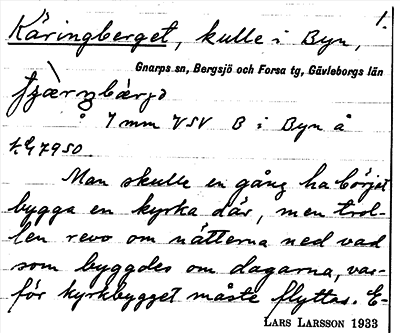 1.
Käringberget, kulle i Byn,
Gnarps sn, Bergsjö och Forsa tg, Gävleborgs län
å 7 mm VSV B i Byn å
Man skulle en gång ha börjat
bygga en kyrka där, men trol-
len revo om nätterna ned vad
som byggdes om dagarna, var-
för kyrkbygget måste flyttas. E-
LARS LARSSON 1933